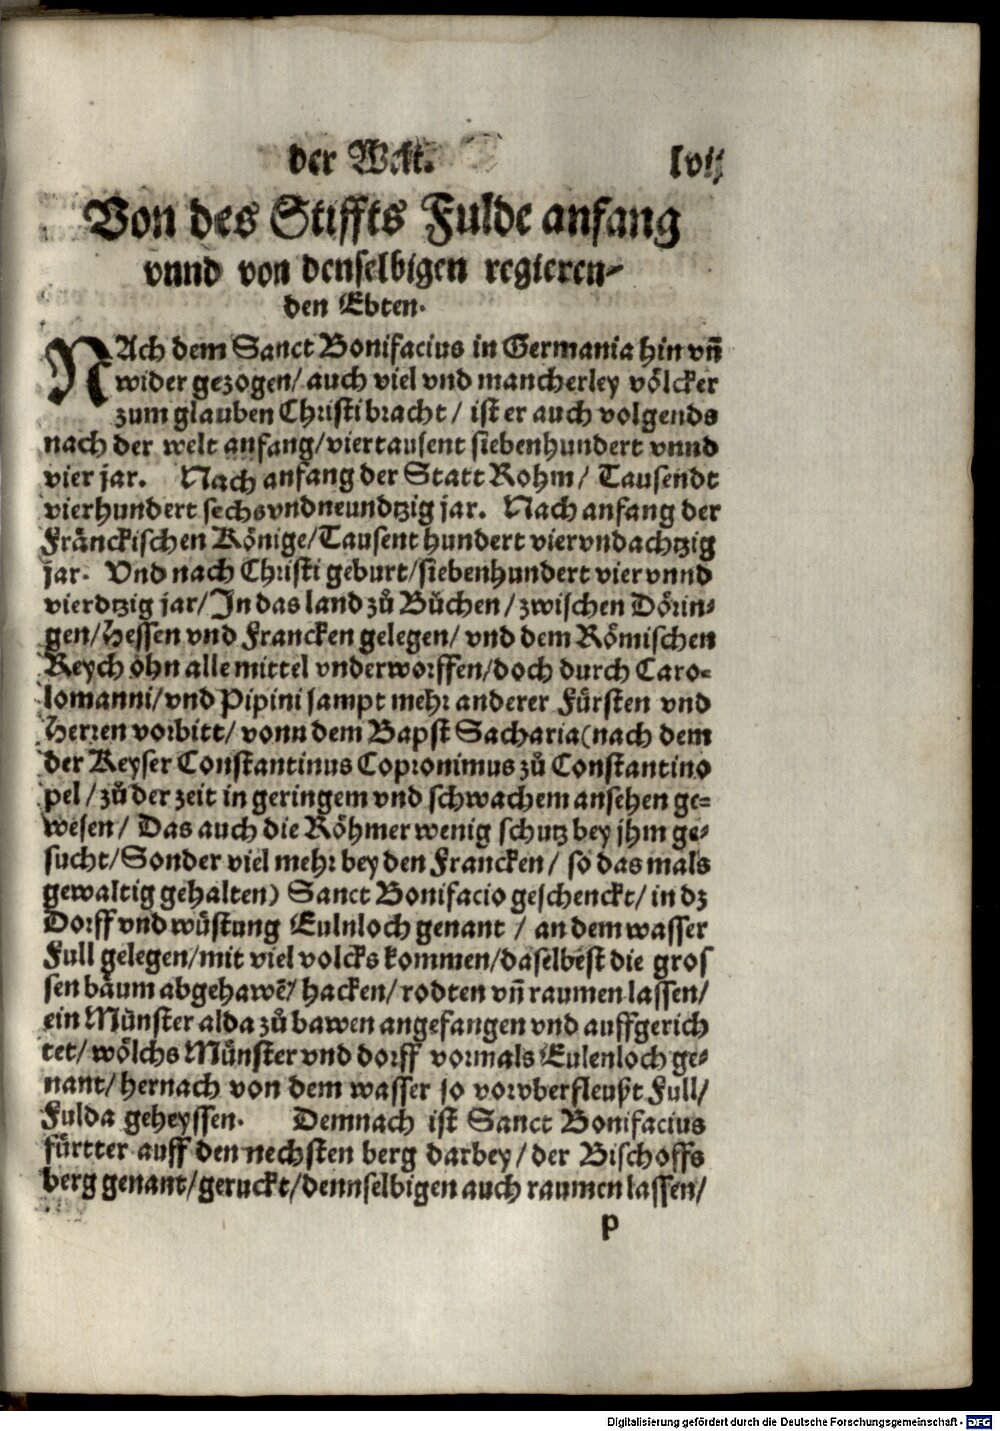 der Welt. lvij
Von des Stiffts Fulde anfang
vnnd von denselbigen regieren-
den Ebten.
NAch dem Sanct Bonifacius in Germania hin vñ
wider gezogen/ auch viel vnd mancherley völcker
zum glauben Christi bracht / ist er auch volgends
nach der welt anfang/viertausent siebenhundert vnnd
vier jar. Nach anfang der Statt Rohm/ Tausendt
vierhundert sechsvndneundtzig jar. Nach anfang der
Fränckischen Könige/Tausent hundert viervndachtzig
jar. Vnd nach Christi geburt/siebenhundert vier vnnd
vierdtzig jar/In das land zů Bůchen/zwischen Dörin-
gen/Hessen vnd Francken gelegen/ vnd dem Römischen
Reych ohn alle mittel vnderworffen/doch durch Caro-
lomanni/vnd Pipini sampt mehr anderer Fürsten vnd
Herren vorbitt/ vonn dem Bapst Sacharia(nach dem
der Keyser Constantinus Copronimus zů Constantino
pel /zů der zeit in geringem vnd schwachem ansehen ge-
wesen/ Das auch die Röhmer wenig schutz bey jhm ge-
sucht/Sonder viel mehr bey den Francken/ so das mals
gewaltig gehalten) Sanct Bonifacio geschenckt/ in dz
Dorff vnd wüstung Eulnloch genant / an dem wasser
Full gelegen/mit viel volcks kommen/daselbest die gros
sen bäum abgehawẽ/ hacken/rodten vñ raumen lassen/
ein Münster alda zů bawen angefangen vnd auffgerich
tet/ wölchs Münster vnd dorff vormals Eulenloch ge-
nant/ hernach von dem wasser so vorvberfleußt Full/
Fulda geheyssen. Demnach ist Sanct Bonifacius
fürtter auff den nechsten berg darbey/ der Bischoffs
berg genant/geruckt/dennselbigen auch raumen lassen/
p
Digitalisierung gefördert durch die Deutsche Forschungsgemeinschaft - DFG